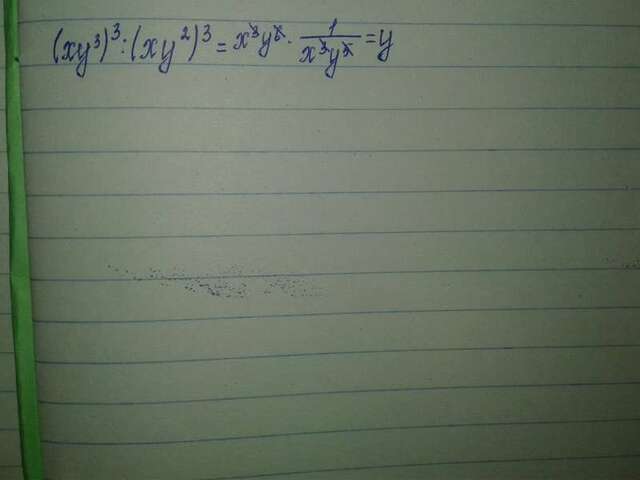 (xy³)³:(xy²)³ = x³y⁸ · 1/x³y⁸ = y